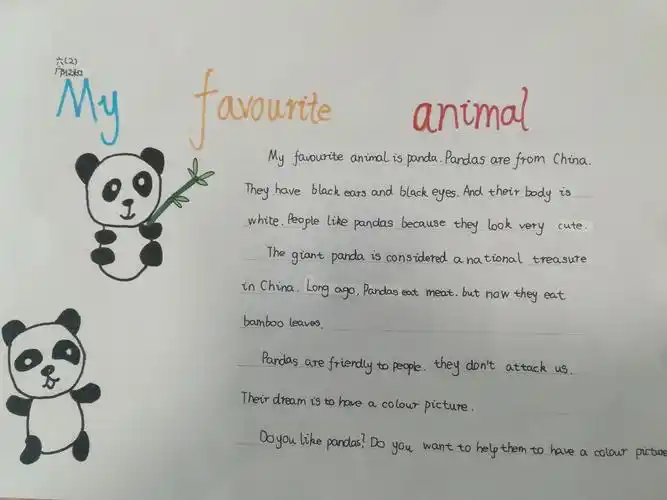 六(2)
My favourite animal
My favourite animal is panda. Pandas are from China.
They have black ears and black eyes. And their body is
white. People like pandas because they look very cute.
The giant panda is considered a national treasure
in China. Long ago, Pandas eat meat. but now they eat
bamboo leaves.
Pandas are friendly to people. they don't attack us.
Their dream is to have a colour picture.
Do you like pandas? Do you want to help them to have a colour picture